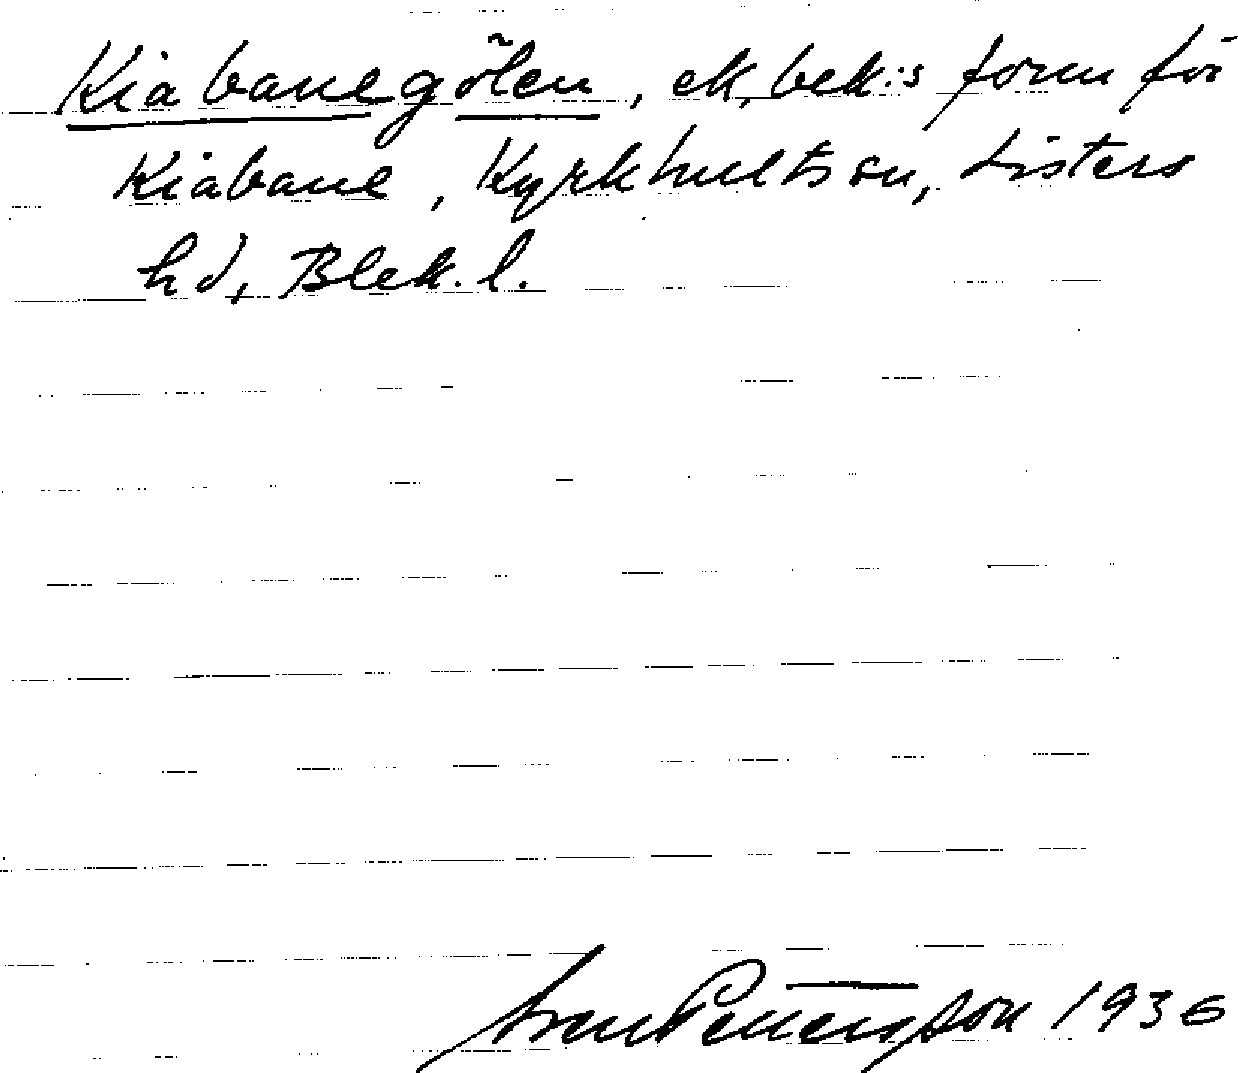 Kiabanegölen, ek, bek:s form för
Kiabane, Kyrkhults sn, Listers
hd, Blek. l.
Sven Petterson 1936